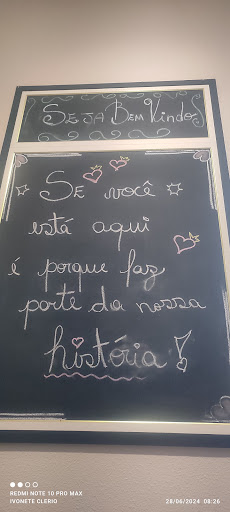 Seja Bem Vindo
Se você
está aqui
é porque faz
parte da nossa
história!
REDMI NOTE 10 PRO MAX
IVONETE CLERIO
28/06/2024 08:26